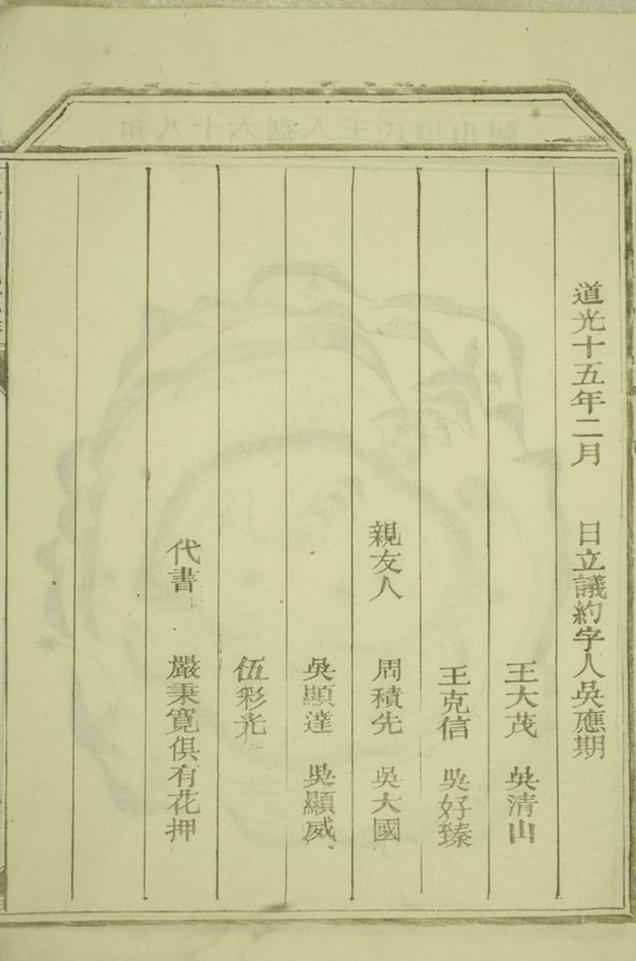 道光十五年二月　日立議約字人吳應期
王大茂　吳清山
王克信　吳好臻
親友人　周積先　吳大國
吳顯達　吳顯威
伍彩光
代書　嚴秉寬俱有花押